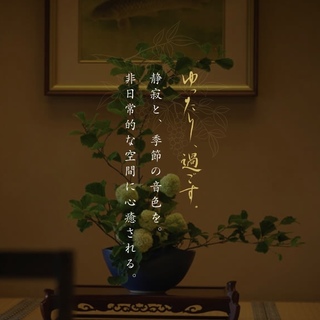 ゆったり、過ごす。
静寂と、季節の音色を。
非日常的な空間に心癒される。